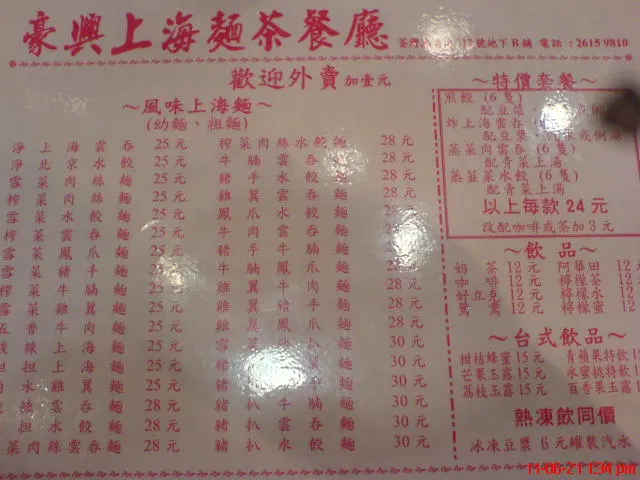 豪興上海麵茶餐廳
荃灣 號地下B鋪 電話：2615 9810
歡迎外賣 加壹元
～風味上海麵～
(幼麵、粗麵)
淨上海雲吞 25元
淨北京水餃 25元
雪菜肉絲麵 25元
榨菜肉絲麵 25元
雪菜水餃麵 25元
榨菜雲吞麵 25元
雪菜鳳爪麵 25元
雪菜豬手麵 25元
榨菜牛腩麵 25元
雪菜雞翼麵 25元
五香牛肉麵 25元
酸辣上海麵 25元
担担上海麵 25元
水雞翼麵 25元
雲吞麵 28元
担水餃麵 28元
菜肉絲雲吞麵 28元
榨菜肉絲水餃麵 28元
牛腩雲吞麵 28元
豬手水餃麵 28元
雞翼雲吞麵 28元
鳳爪水餃麵 28元
牛肉雲吞麵 28元
豬手牛腩麵 28元
牛腩鳳爪麵 28元
雞翼牛腩麵 28元
雞翼豬手麵 28元
雞翼鳳爪麵 28元
豬扒 麵 30元
豬扒 麵 30元
豬扒 麵 30元
豬扒牛腩麵 30元
豬扒 麵 30元
豬扒 麵 30元
～特價套餐～
煎餃 (6隻)
配豆漿
炸上海雲吞
配豆漿 或例湯
蒸菜肉雲吞 (6隻)
配青菜上湯
蒸韮菜水餃 (6隻)
配青菜上湯
以上每款 24元
改配咖啡或茶加3元
～飲品～
奶茶 12元 阿華田 12元
咖啡 12元 檸檬茶 12元
好立克 12元 檸檬水 12元
鴛鴦 12元 檸檬蜜 12元
～台式飲品～
柑桔蜂蜜 15元 青蘋果特飲
芒果玉露 15元 水蜜桃特飲
荔枝玉露 15元 百香果玉露
熱凍飲同價
冰凍豆漿 6元 罐裝汽水